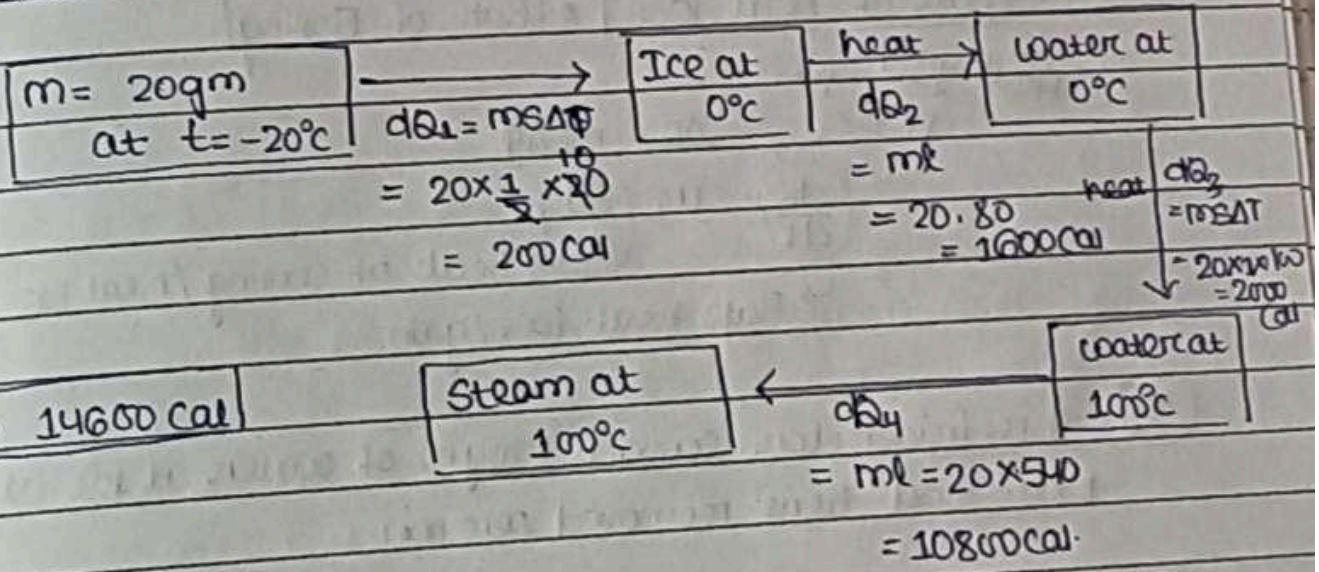 m= 20gm
at t=-20°c
dQ1 = msΔθ
= 20 × 1/2 × 20 10
= 200 Cal
Ice at
0°C
heat
dQ2
= ml
= 20.80
= 1600 Cal
water at
0°C
heat dQ3
= msΔT
= 2000
Cal
water at
100°C
dQ4
= ml = 20×540
= 10800 Cal.
Steam at
100°C
14600 Cal